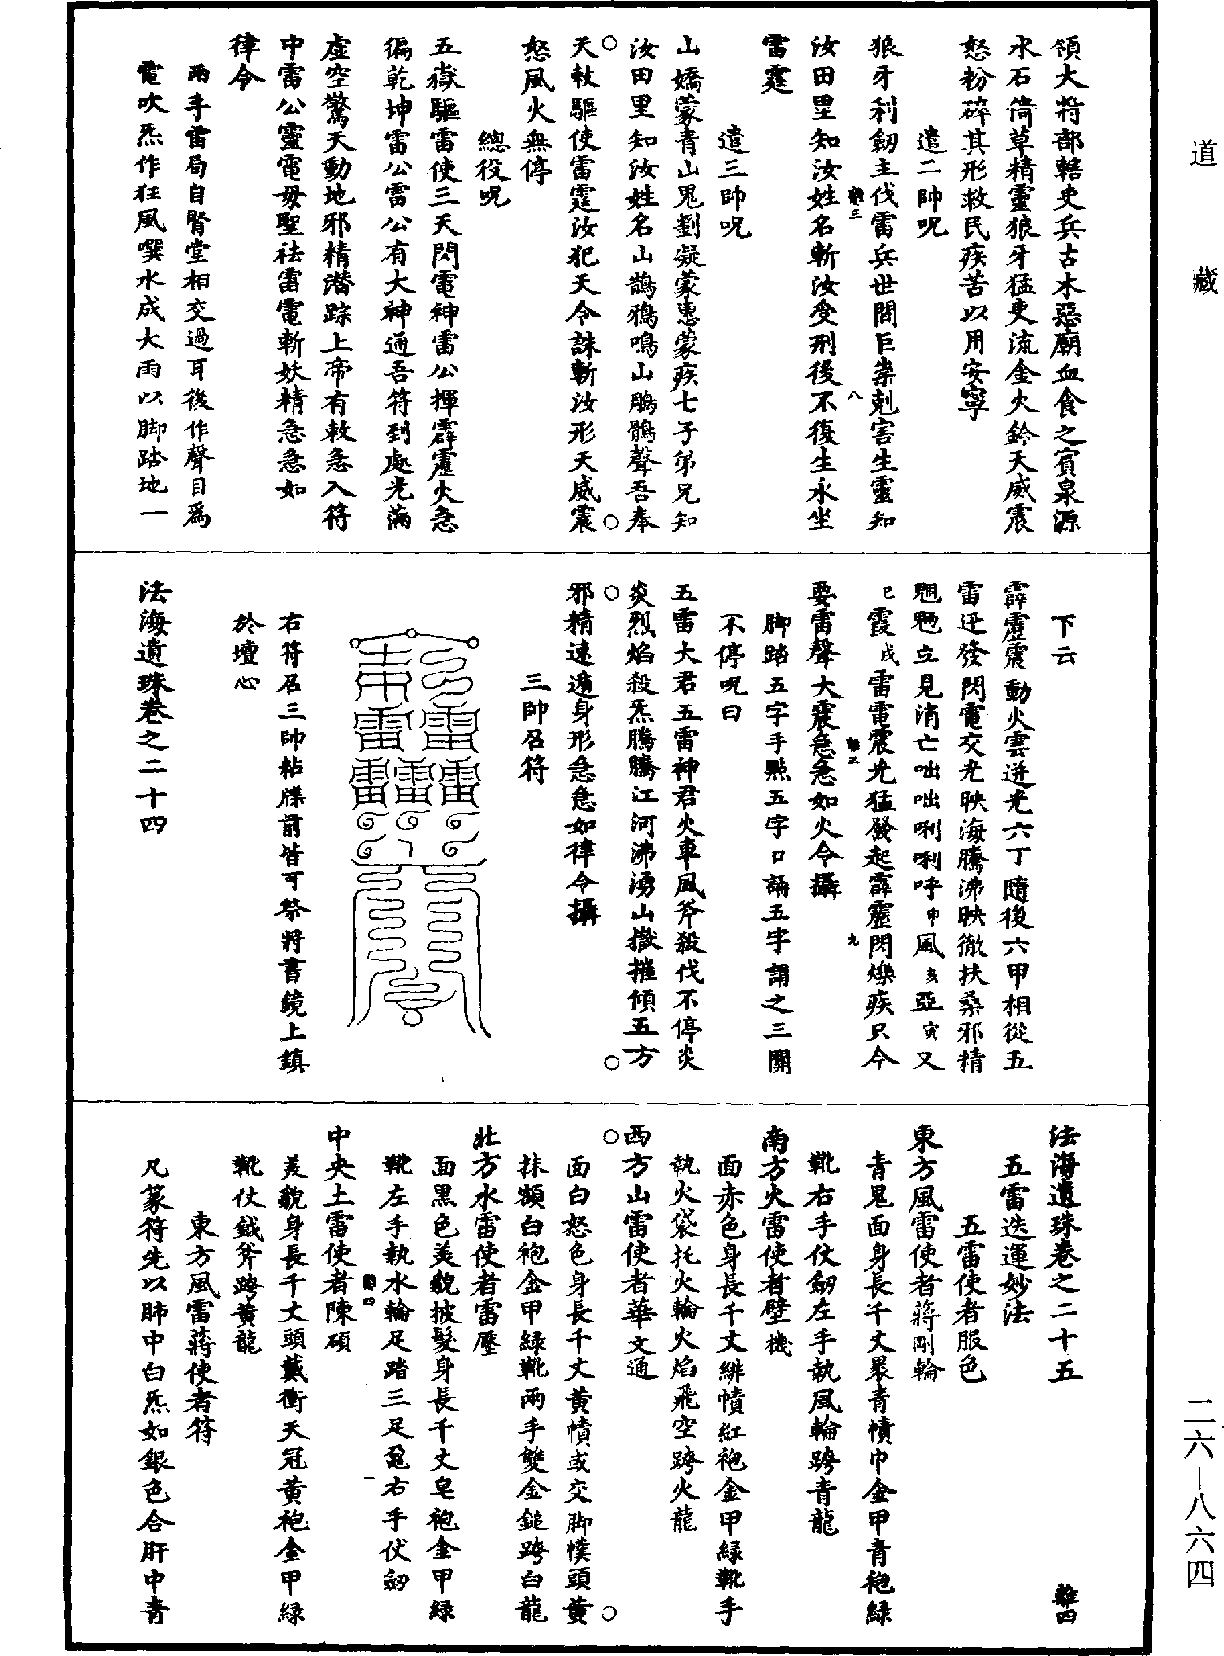 道藏
領大將部轄吏兵古木惡廟血食之賓泉源
水石倚草精靈狼牙猛吏流金火鈴天威震
怒粉碎其形救民疾苦以用安寧
遣二帥呪
狼牙利劒主伐雷兵世間巨祟剋害生靈知
難三 八
汝田里知汝姓名斬汝受刑後不復生永坐
雷霆
遣三帥呪
山嬌蒙青山鬼劉凝蒙惠蒙疾七子弟兄知
汝田里知汝姓名山鵲鴉鳴山鵰鶻聲吾奉
天敕驅使雷霆汝犯天令誅斬汝形天威震
怒風火無停
總役呪
五嶽驅雷使三天閃電神雷公揮霹靂火急
徧乾坤雷公雷公有大神通吾符到處光滿
虛空驚天動地邪精潛踪上帝有敕急入符
中雷公靈電母聖祛雷電斬妖精急急如
律令
兩手雷局自腎堂相交過耳後作聲目爲
電吹炁作狂風噀水成大雨以脚踏地一
下云
霹靂震動火雲迸光六丁隨後六甲相從五
雷迅發閃電交光映海騰沸映徹扶桑邪精
魍魎立見消亡咄咄唎唎呼申風亥亞寅又
巳霞戌雷雷震光猛發起霹靂閃爍疾只今
難三 九
要雷聲大震急急如火令攝
脚踏五字手點五字口誦五字謂之三關
不停呪曰
五雷大君五雷神君火車風斧殺伐不停炎
炎烈焰殺炁騰騰江河沸湧山嶽摧傾五方
邪精速遁身形急急如律令攝
三帥召符
右符召三帥粘牒前皆可祭將書鏡上鎮
於壇心
法海遺珠卷之二十四
法海遺珠卷之二十五 難四
五雷迭運妙法
五雷使者服色
東方風雷使者蔣剛輪
青鬼面身長千丈裹青幘巾金甲青袍緑
靴右手仗劒左手執風輪跨青龍
南方火雷使者壁機
面赤色身長千丈緋幘紅袍金甲緑靴手
執火袋托火輪火焰飛空跨火龍
西方山雷使者華文通
面白怒色身長千丈黄幘或交脚幞頭黄
抹額白袍金甲緑靴兩手雙金鎚跨白龍
北方水雷使者雷壓
面黑色美貌披髮身長千丈皂袍金甲緑
靴左手執水輪足踏三足黿右手仗劒
難四 一
中央土雷使者陳碩
美貌身長千丈頭戴衝天冠黄袍金甲緑
靴仗鉞斧跨黄龍
東方風雷蔣使者符
凡篆符先以肺中白炁如銀色合肝中青
二六—八六四